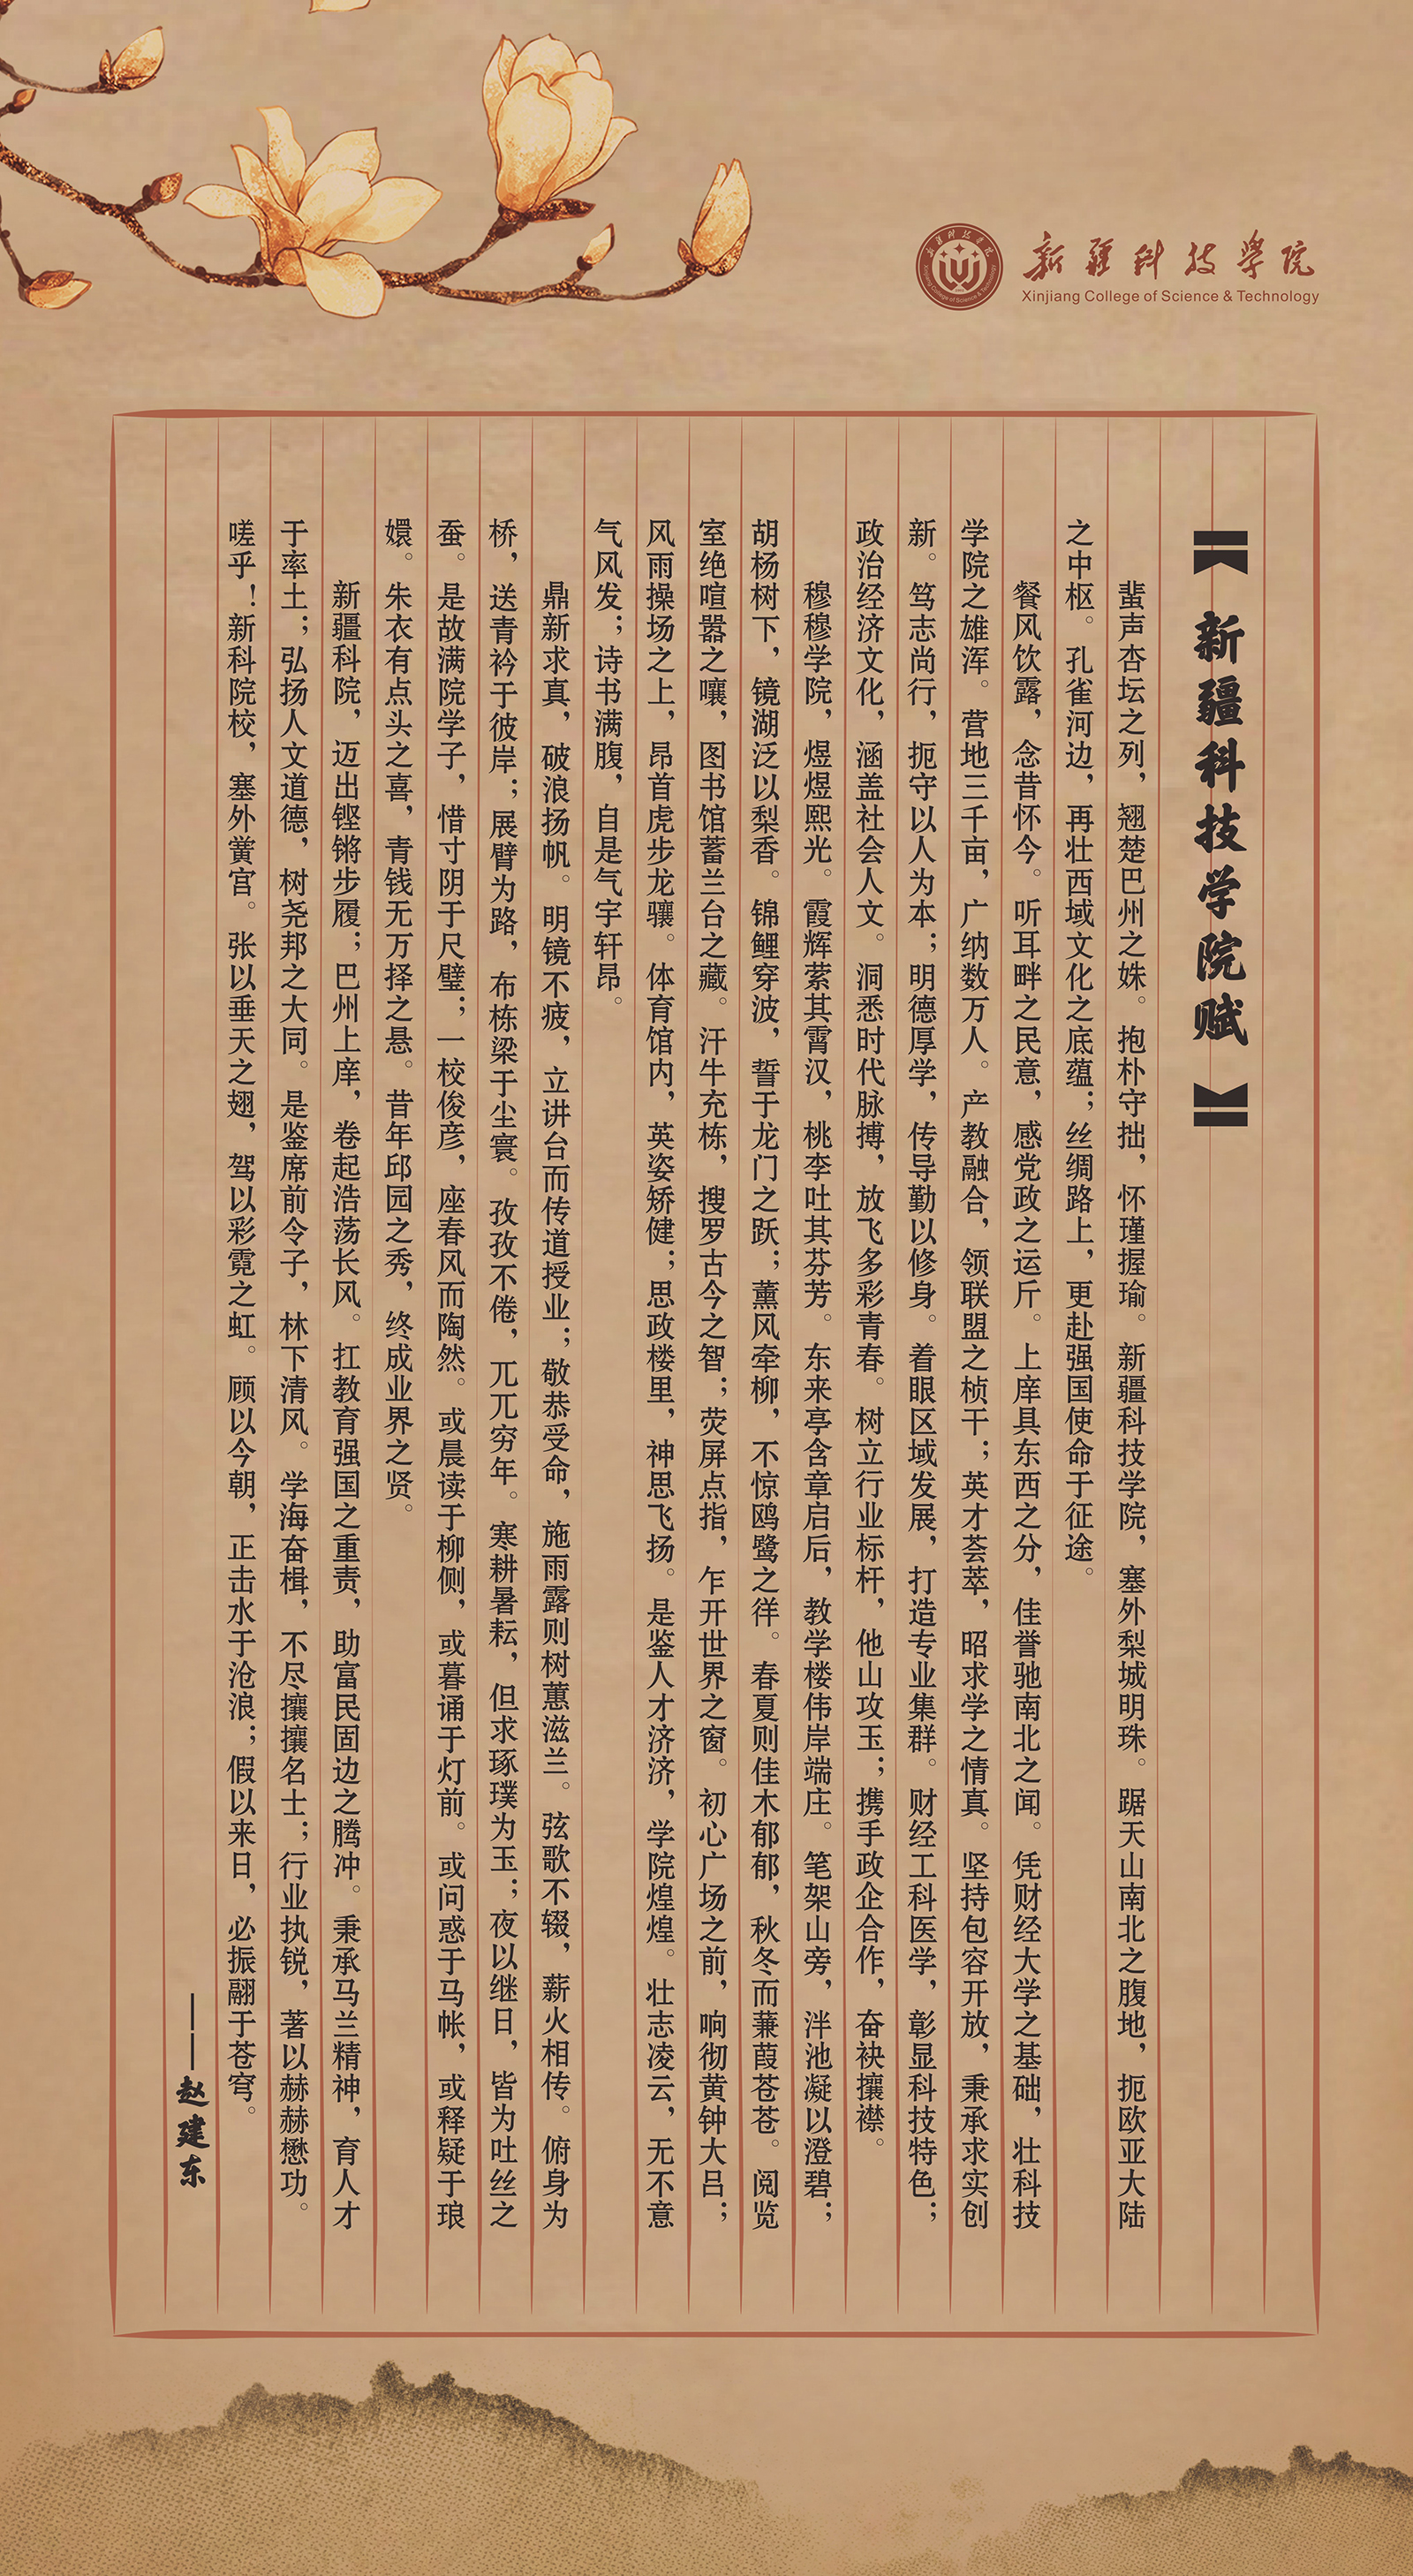 新疆科技学院
Xinjiang College of Science & Technology
【新疆科技学院赋】
蜚声杏坛之列，翘楚巴州之姝。抱朴守拙，怀瑾握瑜。新疆科技学院，塞外梨城明珠。踞天山南北之腹地，扼欧亚大陆
之中枢。孔雀河边，再壮西域文化之底蕴；丝绸路上，更赴强国使命于征途。
餐风饮露，念昔怀今。听耳畔之民意，感党政之运斤。上庠具东西之分，佳誉驰南北之闻。凭财经大学之基础，壮科技
学院之雄浑。营地三千亩，广纳数万人。产教融合，领联盟之桢干；英才荟萃，昭求学之情真。坚持包容开放，秉承求实创
新。笃志尚行，扼守以人为本；明德厚学，传导勤以修身。着眼区域发展，打造专业集群。财经工科医学，彰显科技特色；
政治经济文化，涵盖社会人文。洞悉时代脉搏，放飞多彩青春。树立行业标杆，他山攻玉；携手政企合作，奋袂攘襟。
穆穆学院，煜煜熙光。霞辉萦其霄汉，桃李吐其芬芳。东来亭含章启后，教学楼伟岸端庄。笔架山旁，泮池凝以澄碧；
胡杨树下，镜湖泛以梨香。锦鲤穿波，誓于龙门之跃；薰风牵柳，不惊鸥鹭之徉。春夏则佳木郁郁，秋冬而蒹葭苍苍。阅览
室绝喧嚣之嚷，图书馆蓄兰台之藏。汗牛充栋，搜罗古今之智；荧屏点指，乍开世界之窗。初心广场之前，响彻黄钟大吕；
风雨操场之上，昂首虎步龙骧。体育馆内，英姿矫健；思政楼里，神思飞扬。是鉴人才济济，学院煌煌。壮志凌云，无不意
气风发；诗书满腹，自是气宇轩昂。
鼎新求真，破浪扬帆。明镜不疲，立讲台而传道授业；敬恭受命，施雨露则树蕙滋兰。弦歌不辍，薪火相传。俯身为
桥，送青衿于彼岸；展臂为路，布栋梁于尘寰。孜孜不倦，兀兀穷年。寒耕暑耘，但求琢璞为玉；夜以继日，皆为吐丝之
蚕。是故满院学子，惜寸阴于尺璧；一校俊彦，座春风而陶然。或晨读于柳侧，或暮诵于灯前。或问惑于马帐，或释疑于琅
嬛。朱衣有点头之喜，青钱无万择之悬。昔年邱园之秀，终成业界之贤。
新疆科院，迈出铿锵步履；巴州上庠，卷起浩荡长风。扛教育强国之重责，助富民固边之腾冲。秉承马兰精神，育人才
于率土；弘扬人文道德，树尧邦之大同。是鉴席前令子，林下清风。学海奋楫，不尽攘攘名士；行业执锐，著以赫赫懋功。
嗟乎！新科院校，塞外黉宫。张以垂天之翅，驾以彩霓之虹。顾以今朝，正击水于沧浪；假以来日，必振翮于苍穹。
——赵建东